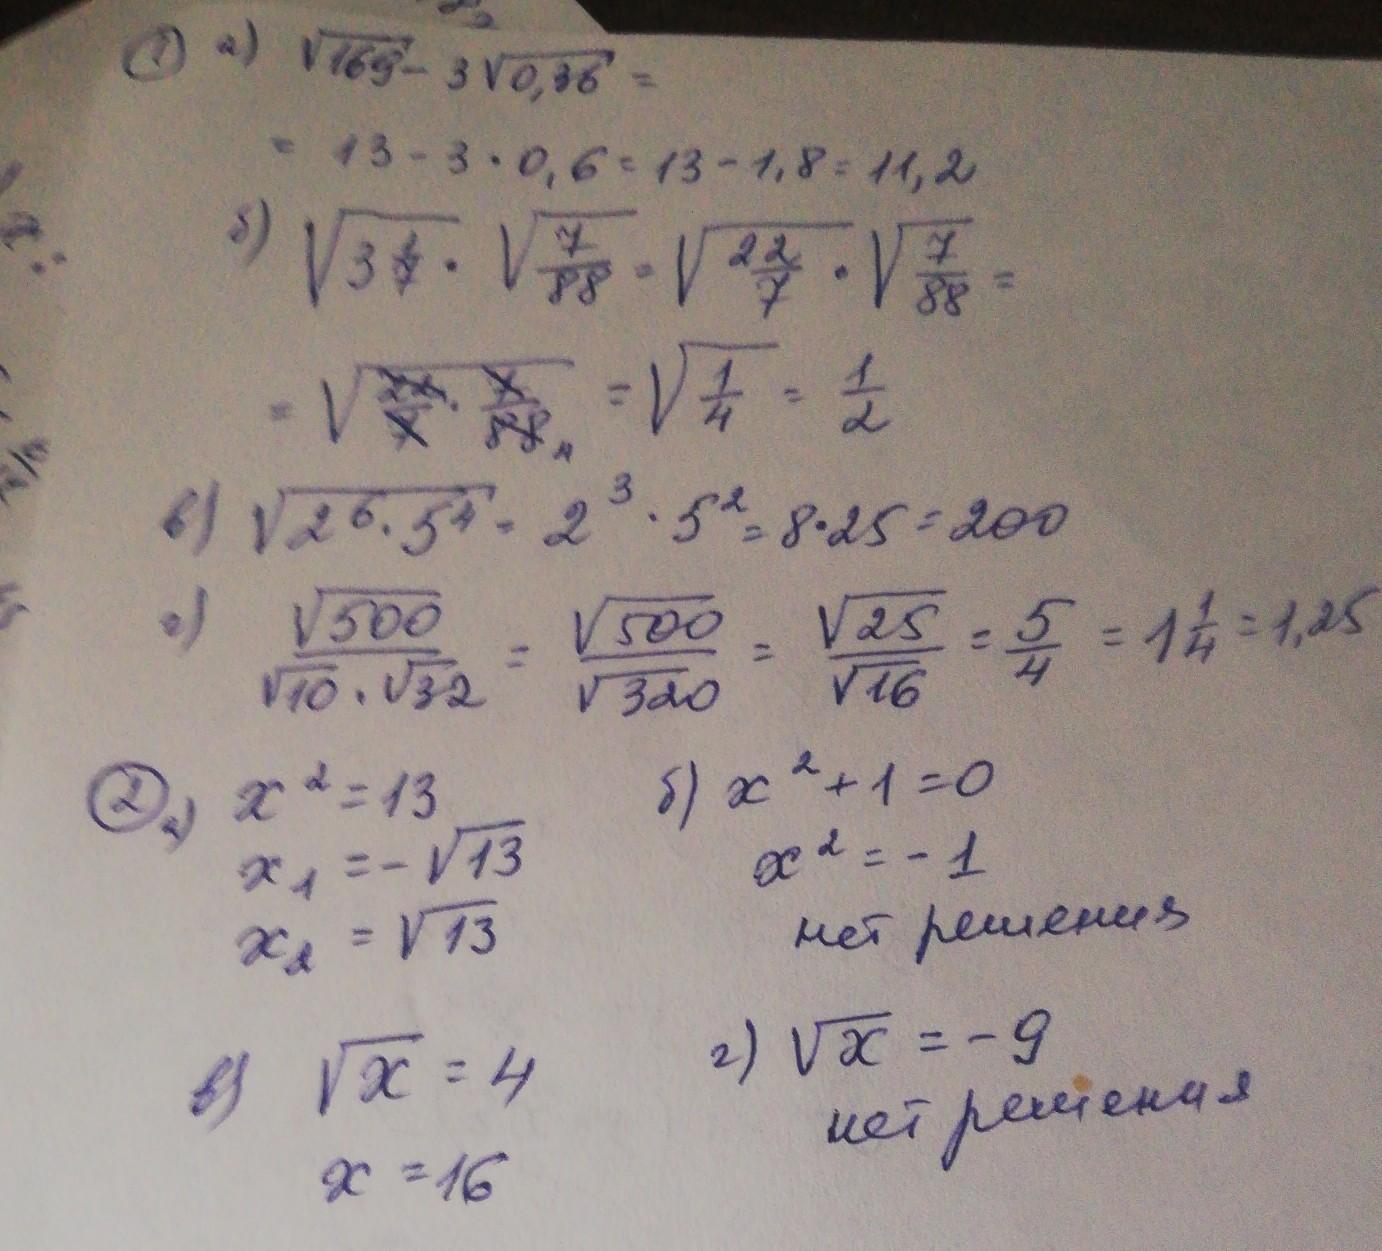 ① а) √169 - 3√0,36 =
= 13 - 3 · 0,6 = 13 - 1,8 = 11,2
б) √(3 1/7) · √(7/88) = √(22/7) · √(7/88) =
= √(22/7 · 7/88 4) = √(1/4) = 1/2
в) √(2⁶ · 5⁴) = 2³ · 5² = 8 · 25 = 200
г) √500/(√10 · √32) = √500/√320 = √25/√16 = 5/4 = 1 1/4 = 1,25
② а) x² = 13 б) x² + 1 = 0
x₁ = -√13 x² = -1
x₂ = √13 нет решения
в) √x = 4 г) √x = -9
x = 16 нет решения